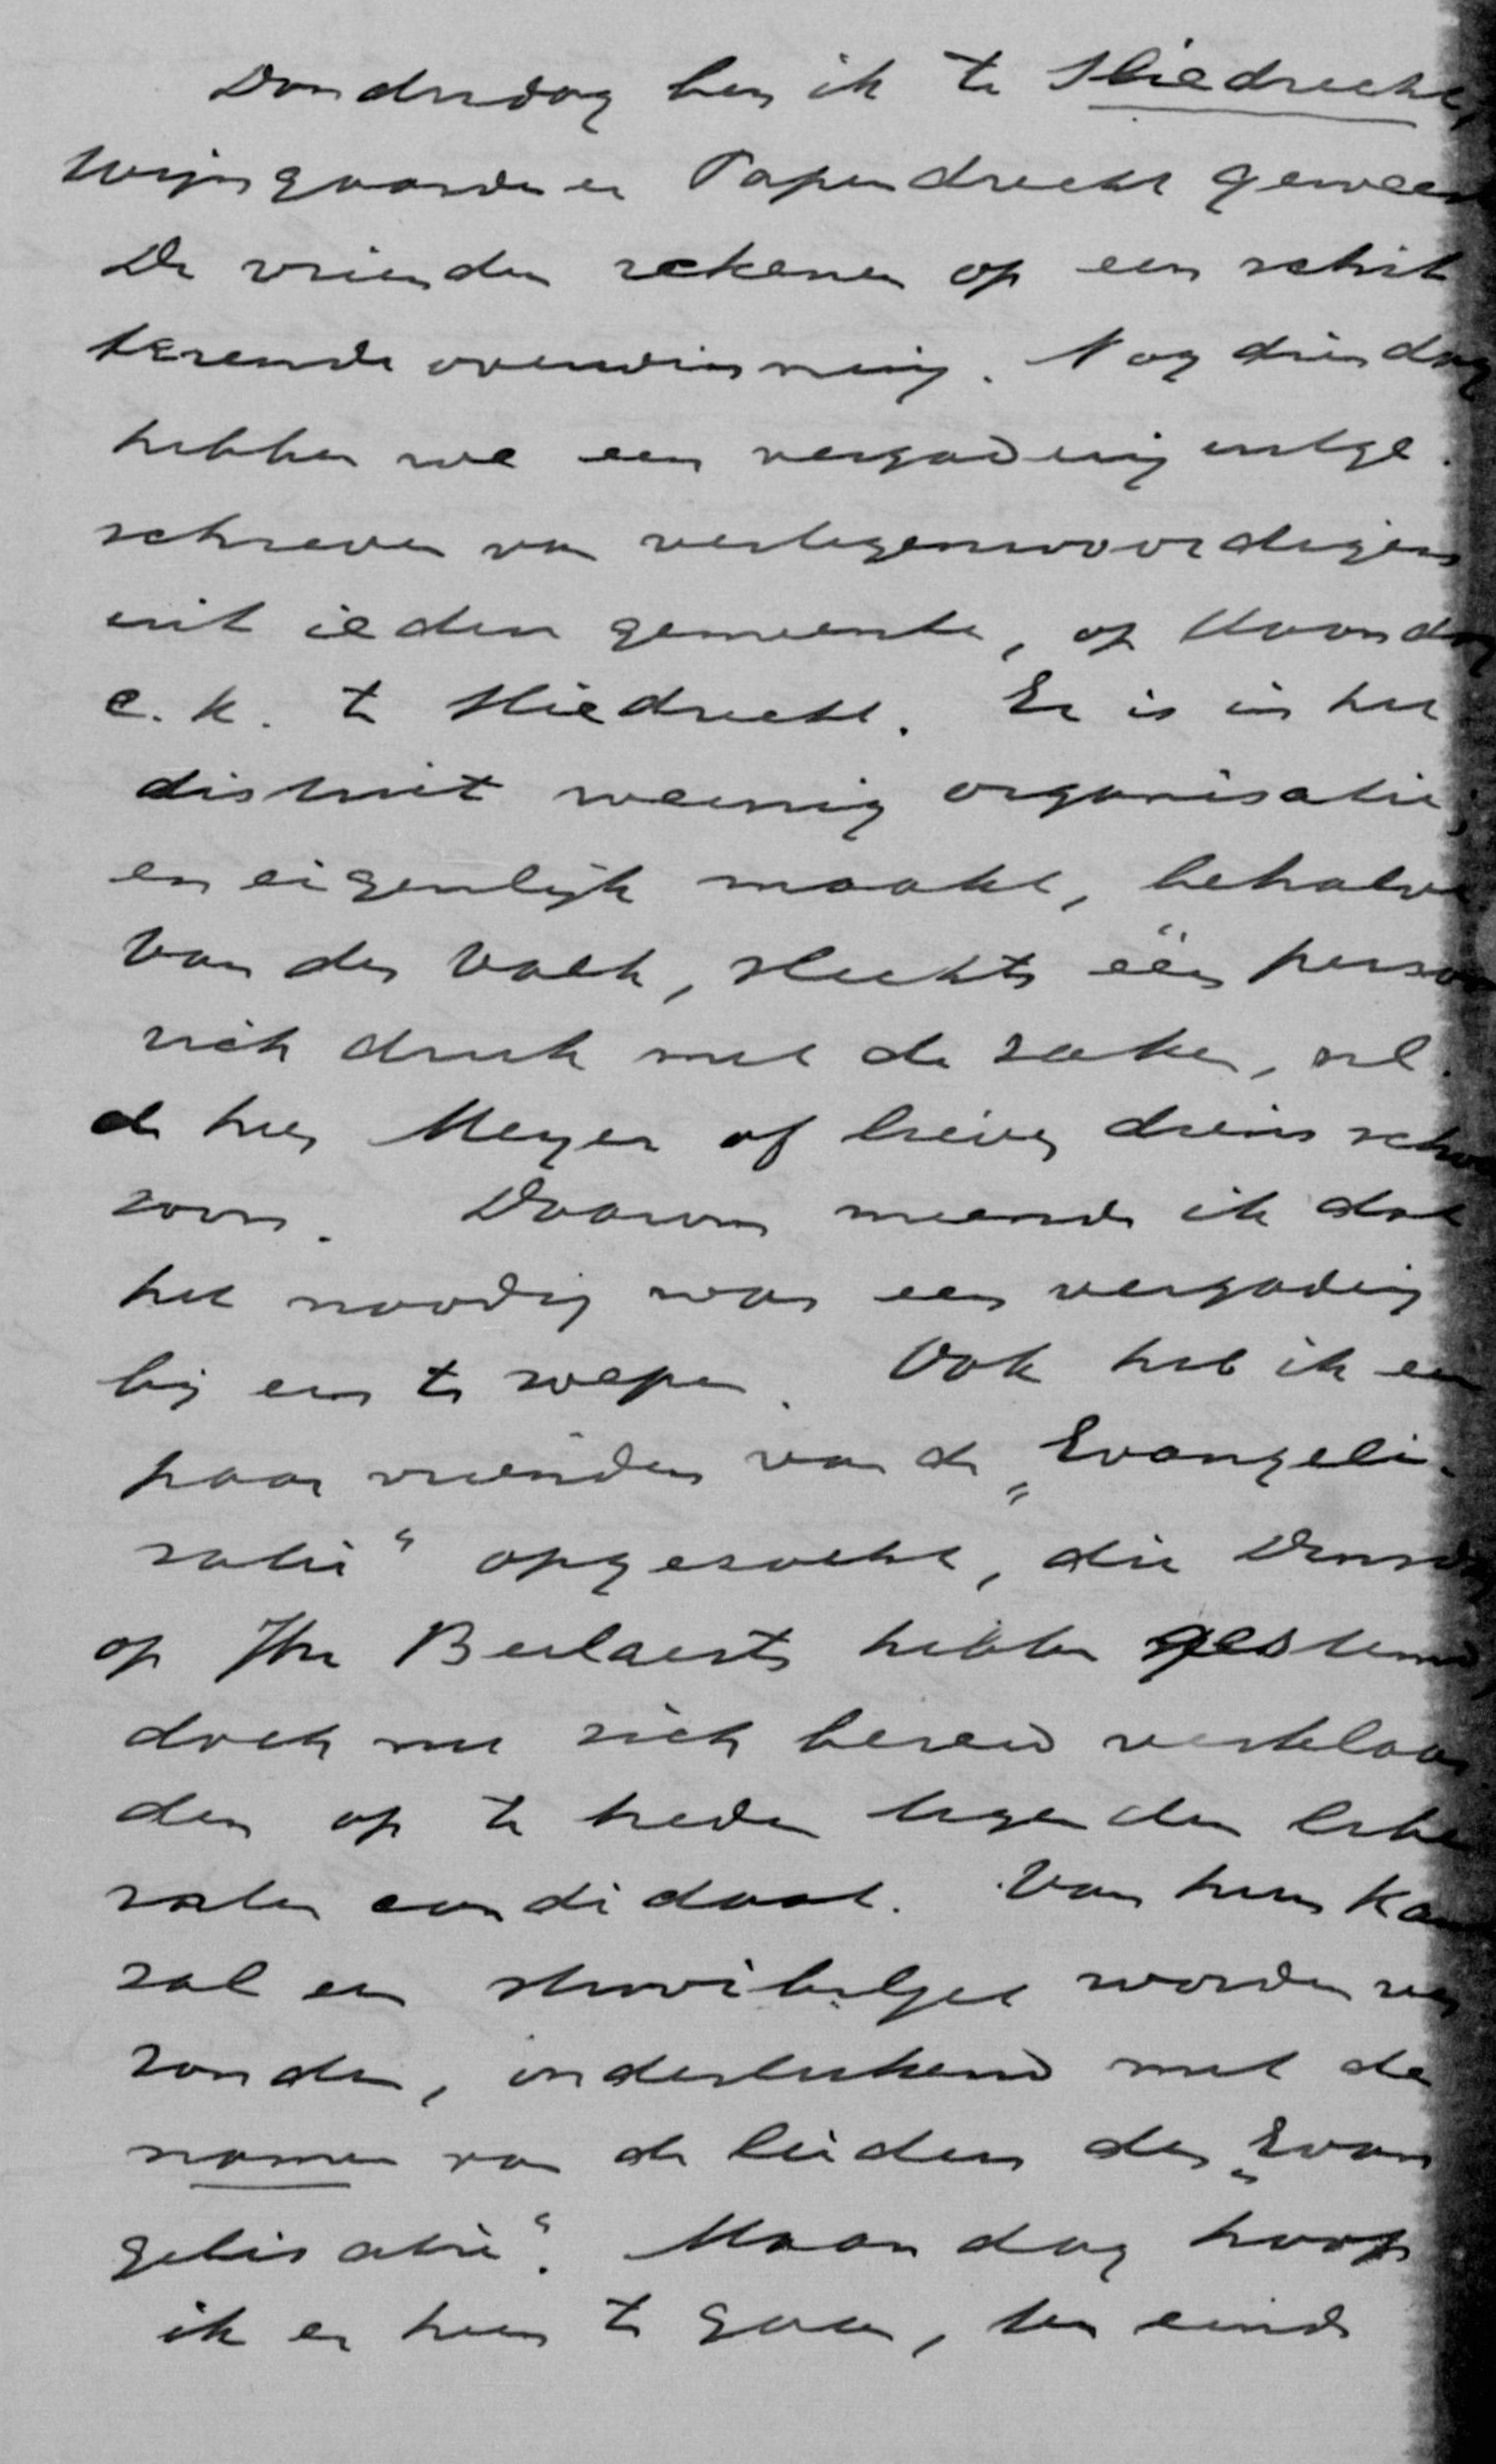 Donderdag ben ik te Sliedrecht,
Wijngaarden en Papendrecht geweest
De vrienden rekenen op een schit
terende overwinning. Nog dien dag
hebben we een vergadering uitge-
schreven van vertegenwoordigers
uit iedere gemeente, op Maandag
e.k. te Sliedrecht. Er is in het
district weinig organisatie;
en eigenlijk maakt, behalve
Van der Valk, slechts één persoon
zich druk met de zaken, nl.
de heer Meyer of liever diens schoon
zoon. Daarom meende ik dat
het noodig was een vergadering
bij een te roepen. Ook heb ik een
paar vrienden van de „Evangeli-
satie" opgezocht, die Dinsdag
op Jhr Beelaerts hebben gestemd,
doch nu zich bereid verklaar
den op te treden tegen den libe
ralen candidaat. Van hun kant
zal een strooibiljet worden ver
zonden, onderteekend met de
namen van de leiders der „Evan
gelisatie". Maandag hoop
ik er heen te gaan, ten einde